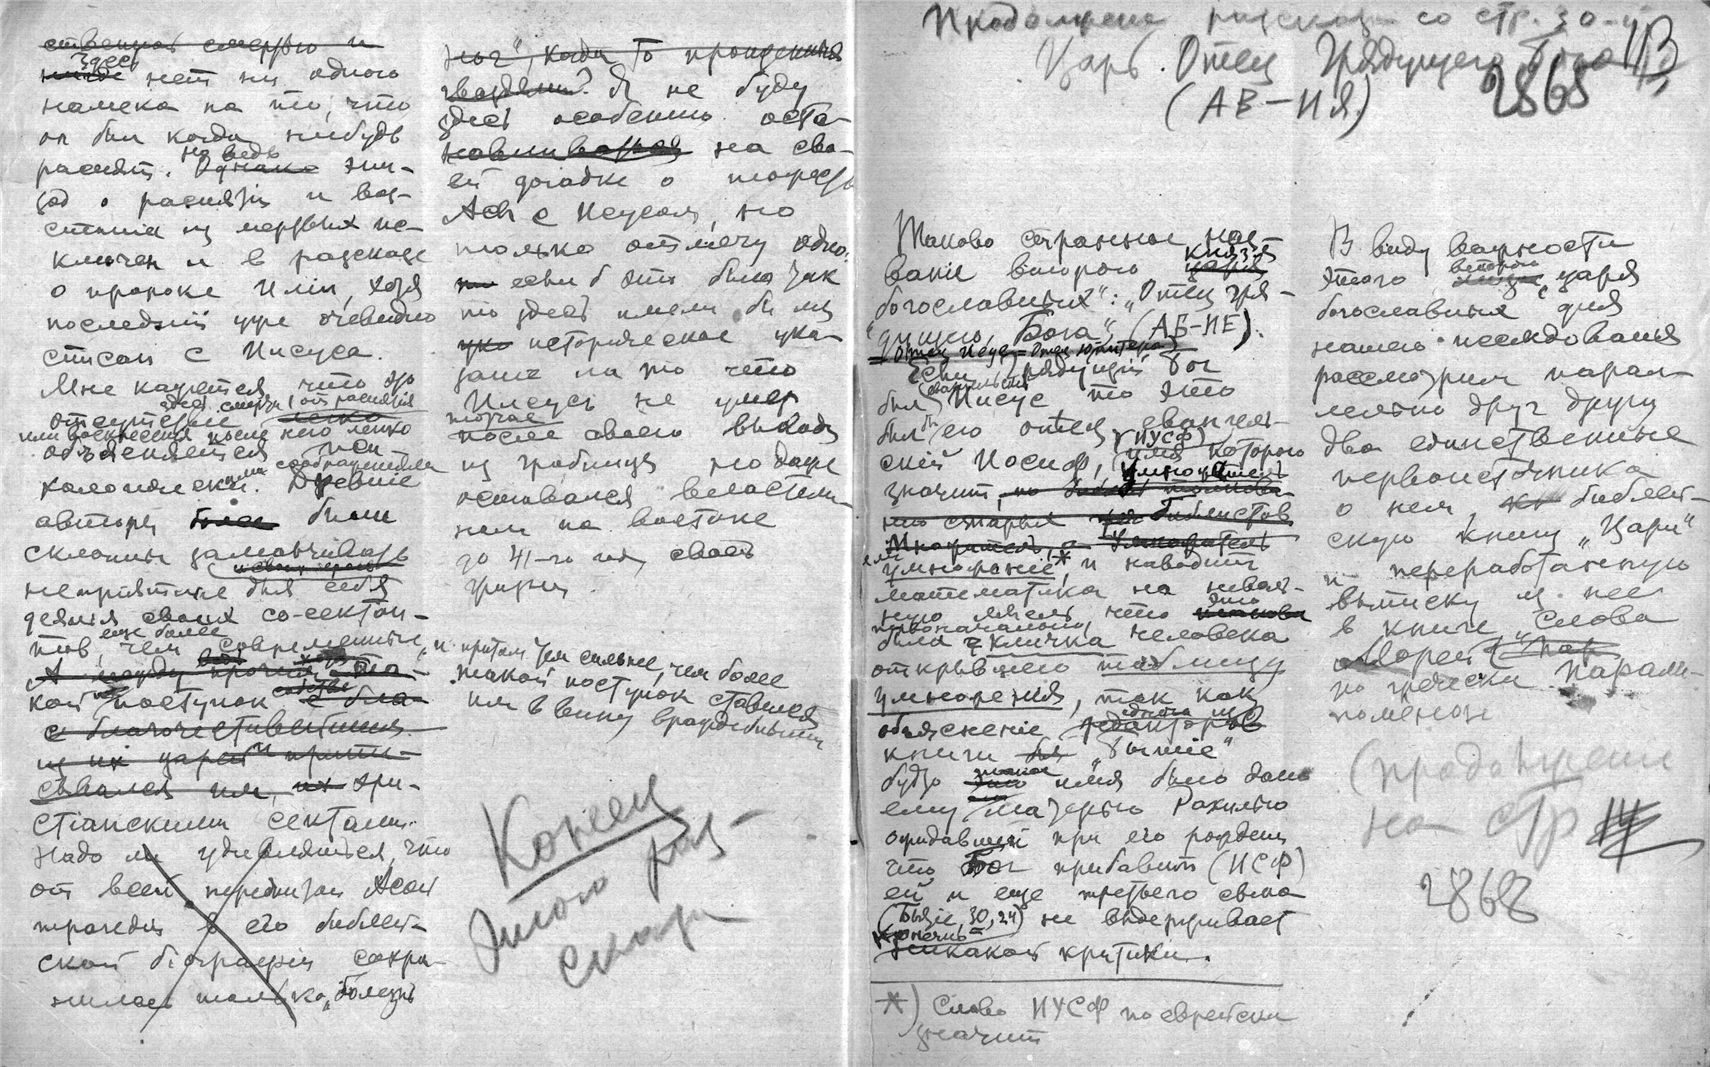 ственной смертью и
здесь
нет ни одного
намека на то, что
он был когда нибудь
распят. но ведь Однако эпи-
зод о распятіи и воз-
станіи из мертвых ис-
ключен и в разсказе
о пророке Иліи, хотя
последній уже очевидно
списан с Иисуса.
Мне кажется, что это
отсутствіе здесь смерти от распятія легко
или воскресенія после него легко
объясняется
Древніе
авторы более были
склонны замалчивать
непріятные для себя
деянія своих со-сектан-
тов, еще более чем современные,
кой поступок
с благочестивейших
из их царей припи-
сывался им, их хри-
стіанскими сектами.
Надо ли удивляться, что
от всей
трагедіи в его библей-
ской біографіи сохра-
нилась только „болезнь
ног“, когда то пронзенных
гвоздями? Я не буду
здесь особенно оста-
навливаться на сво-
ей догадке о тождестве
Асы с Исусом, но
только отмечу одно:
если б это было так
то здесь имели бы мы
историческое ука-
заніе на то что
Иисус не умер
тотчас
после своего выхода
из гробницы но даже
оставался властели-
ном на востоке
до 41-го года своей
жизни
и притом тем сильнее, чем более
такой поступок ставился
им в вину враждебными
Конец
этого раз-
сказа
Продолжение разсказа со стр. 30-й
Царь. Отец Грядущего бога
(АВ-ИЯ)
2868
Таково странное наз-
ваніе второго князя царя
богославных“: „Отец гря-
дущего Бога“ (АБ-ИЕ).
Отец Исус = Отец Юпитера
Если Грядущій Бог
был евангельскій Иисус то это
был бы его отец евангель-
скій Иосиф, (ИУСФ) имя которого
значит
старых библеистов
Множитель, а Умножитель
умноженіе * и наводит
математика на неволь-
ную мысль, что это
первоначально
была кличка человека
открывшего таблицу
умноженія, так как
объясненіе одного из редакторов
книги „Бытіе“
будто такое имя было дано
ему матерью Рахилью
ожидавшей при его рожденіи
что Бог прибавит (ИСФ)
ей и еще третьего сына
(Бытіе, 30, 24) не выдерживает
конечно
никакой критики.
*) Слово ИУСФ по еврейски
значит
В виду важности
этого второго царя
богославных для
нашего изследованья
рассмотрим парал-
лельно друг другу
два единственные
первоисточника
о нем, библей-
скую книгу „Цари“
и переработанную
выписку из нее
в книге „Слова
дней“
по гречески Парали-
поменон
(продолжение
на стр
2868